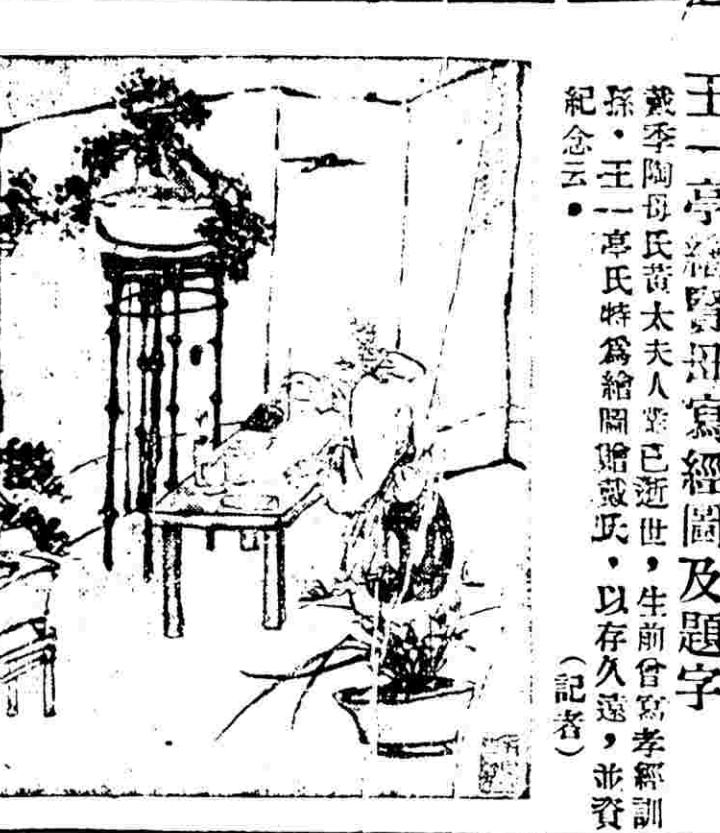 王一亭繪賢母寫經圖及題字
戴季陶母氏黃太夫人業已逝世，生前曾寫孝經訓
孫．王一亭氏特爲繪圖贈戴氏，以存久遠，並資
紀念云．
（記者）